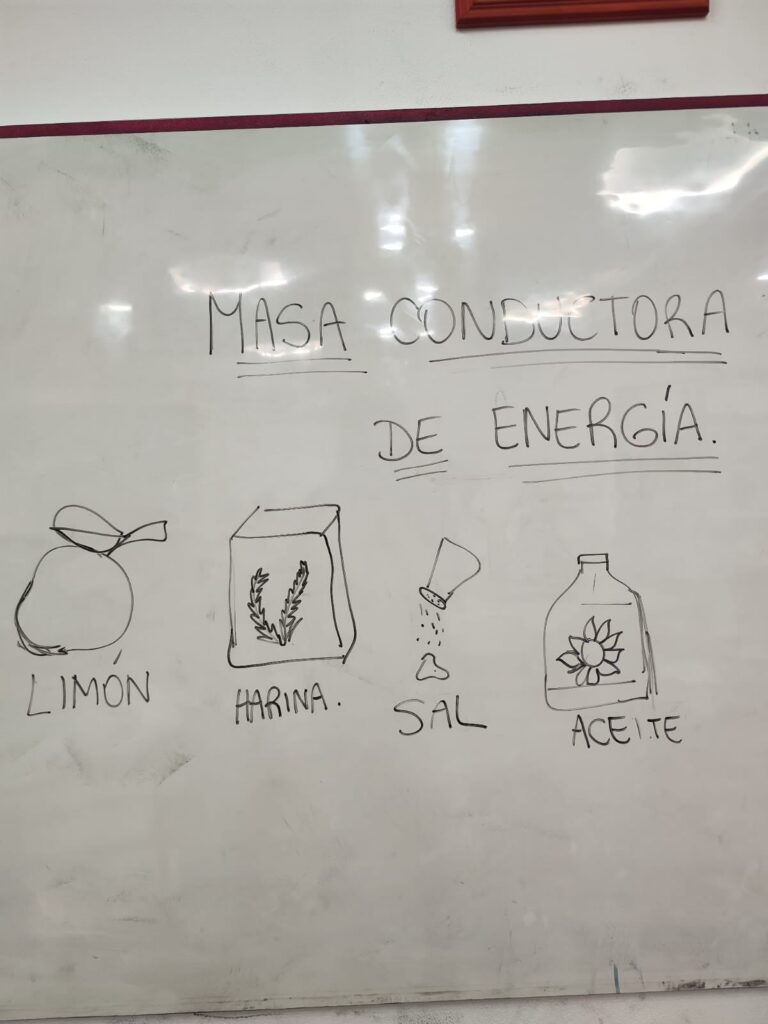 MASA CONDUCTORA
DE ENERGÍA.
LIMÓN
HARINA.
SAL
ACEITE